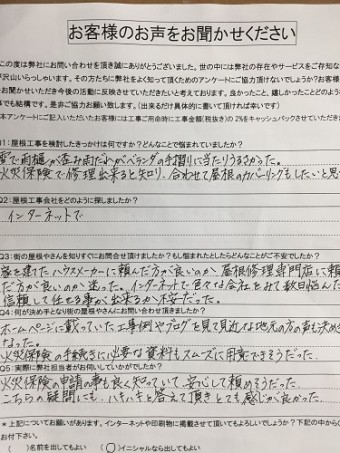 お客様のお声をお聞かせください
この度は弊社にお問い合わせを頂き誠にありがとうございました。世の中には弊社の存在やサービスをご存知な
沢山いらっしゃいます。その方たちに弊社をよく知って頂くためのアンケートにご協力頂けないでしょうか?お客様
をお聞かせいただき今後の活動に反映させていただきたいと考えております。良かったこと、嬉しかったことどのよう
事でも結構です。是非ご協力お願い致します。(出来るだけ具体的に書いて頂ければ幸いです)
本アンケートにご記入いただいたお客様には工事ご用命時に工事金額(税抜き)の2%をキャッシュバックさせていただ
Q1:屋根工事を検討したきっかけは何ですか?どんなことで悩まれていましたか?
雪で雨樋が歪み雨だれがベランダの手摺りに当たりうるさかった。
火災保険で修理出来ると知り、合わせて屋根のカバーリングもしたいと思
Q2:屋根工事会社をどのように探しましたか?
インターネットで
Q3:街の屋根やさんを知りすぐにお問合せ頂けましたか?もし悩まれたとしたらどんなことがご不安でしたか?
家を建てたハウスメーカーに頼んだ方が良いのか、屋根修理専門店に頼
だ方が良いのか迷った。インターネットで色々な会社をみて数日悩んだ
信頼して任せる事が出来るか不安だった。
Q4:何が決め手となり街の屋根やさんに現場調査を依頼しましたか?
ホームページに載っていた工事例やブログを見て身近な地元の方の事も決め
なった。
火災保険の手続きに必要な資料もスムーズに用意できそうだった。
Q5:実際に弊社担当者がお伺いしていかがでしたか?
火災保険の申請の事も良く知っていて、安心して頼めそうだった。
こちらの疑問にも、ハキハキと答えて頂きとても感じが良かった。
*上記についてお願いがあります。インターネットや印刷物に掲載させて頂いてもよろしいでしょうか?下記の中から
お付下さい。
( )名前を出してもよい (○)イニシャルなら出してもよい